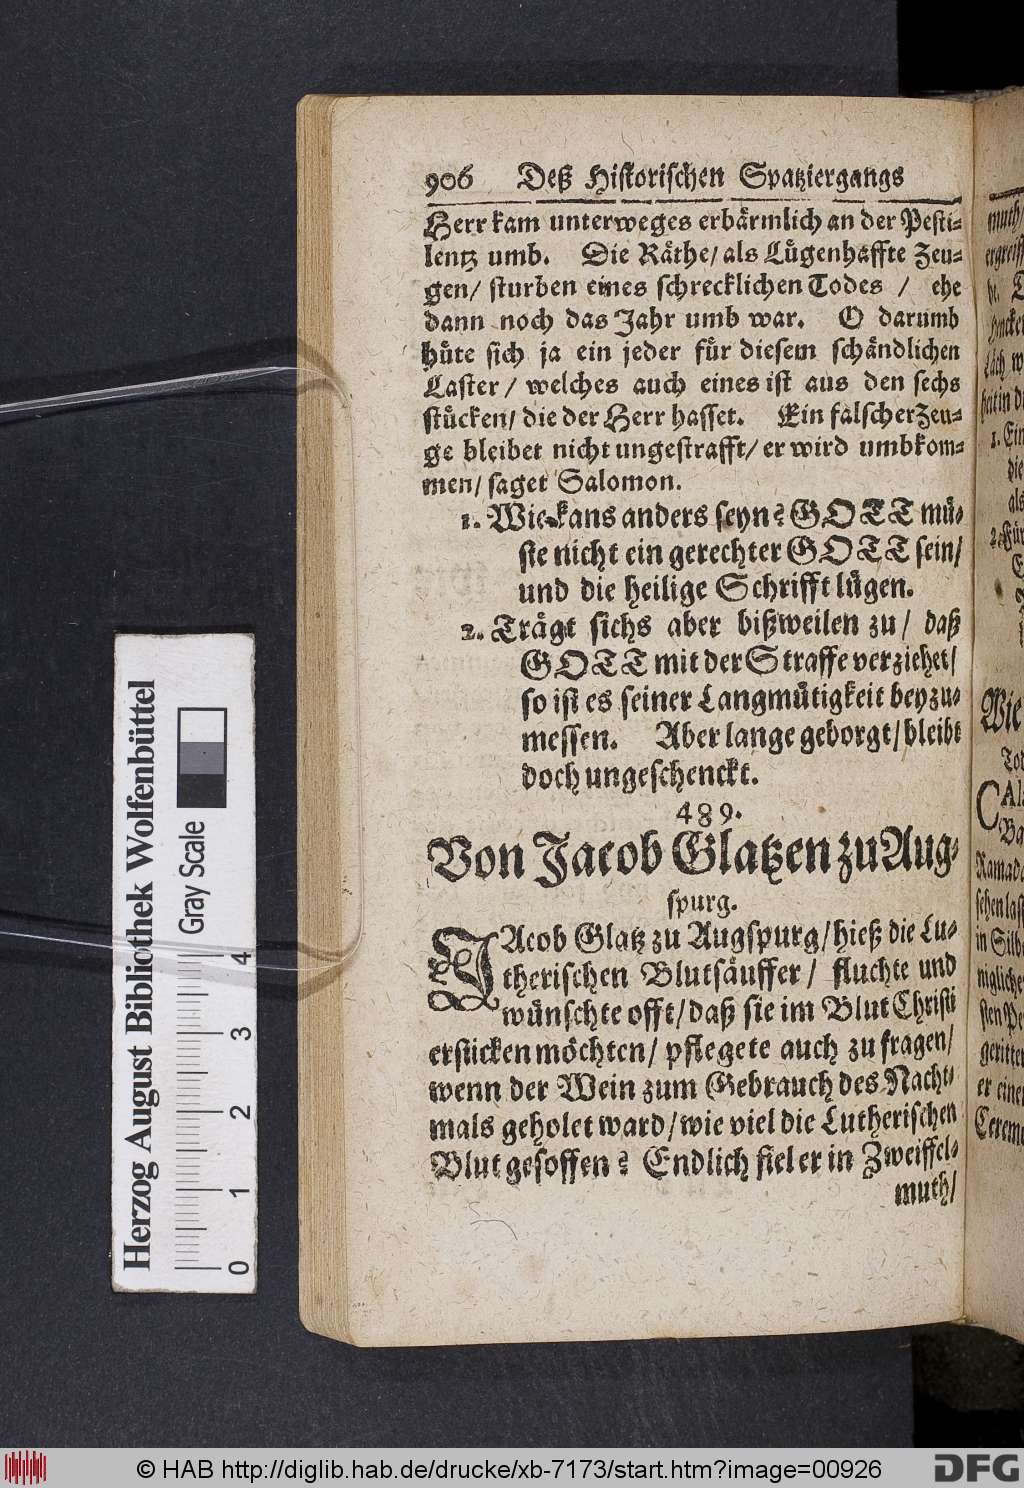 906 Deß Historischen Spatziergangs
Herr kam unterweges erbärmlich an der Pesti-
lentz umb. Die Räthe/ als Lügenhaffte Zeu-
gen/ sturben eines schrecklichen Todes / ehe
dann noch das Jahr umb war. O darumb
hüte sich ja ein jeder für diesem schändlichen
Laster/ welches auch eines ist aus den sechs
stücken/ die der Herr hasset. Ein falscher Zeu-
ge bleibet nicht ungestrafft/ er wird umbkom-
men/ saget Salomon.
1. Wie kans anders seyn? GOTT mü-
ste nicht ein gerechter GOTT sein/
und die heilige Schrifft lügen.
2. Trägt sichs aber bißweilen zu/ daß
GOTT mit der Straffe verziehet/
so ist es seiner Langmütigkeit beyzu-
messen. Aber lange geborgt/ bleibt
doch ungeschenckt.
489.
Von Jacob Glatzen zu Aug-
spurg.
JAcob Glatz zu Augspurg/ hieß die Lu-
therischen Blutsäuffer/ fluchte und
wünschte offt/ daß sie im Blut Christi
ersticken möchten/ pflegete auch zu fragen/
wenn der Wein zum Gebrauch des Nacht-
mals geholet ward/ wie viel die Lutherischen
Blut gesoffen? Endlich fiel er in Zweiffel-
muth/
muth/
1. Ein
die
als
2. Für
Wie
Tod
CAl
Ba
in Silb
er eine
Herzog August Bibliothek Wolfenbüttel
Gray Scale
0 1 2 3 4
© HAB http://diglib.hab.de/drucke/xb-7173/start.htm?image=00926
DFG